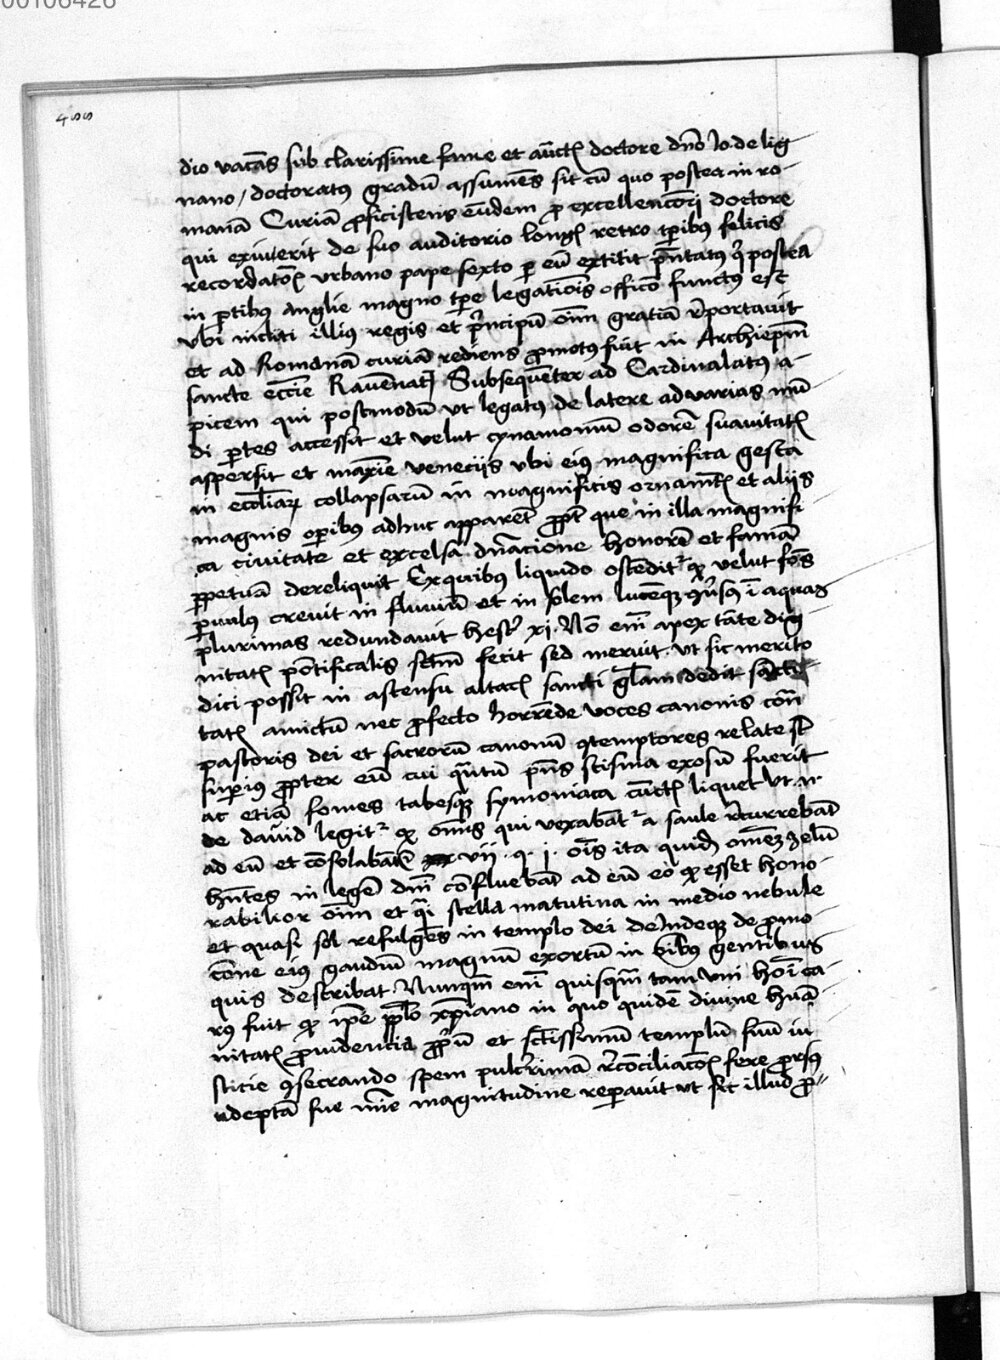 00106426
455
dio vacās sub clarissime fame et auct̄ doctore dn̄o Jo. de lig
nano / doctoratus gradū assumēs sit cū quo postea in ro-
manā Curiā proficiscens eūdem pro excellenciori doctore
qui exiverit de suo auditorio lonḡ retro tp̄ibus felicis
recordatōi Urbano pape sexto per eū extitit pn̄tatus qi postea
in partibus anglie magno tpe legatiōis officō functus est
ubi incliti illius regis et principū oīm gratiā reportavit
et ad Romanā curiā rediens promotus fuit in Archiepm̄
sancte ecc̄ie Ravēnat̄ Subsequēter ad Cardinalatus a-
picem qui postmodū ut legatus de latere ad varias mū-
di partes accessit et velut cynamomū odorē suavitat̄
aspersit et maxīe veneciis ubi eius magnifica gesta
in ecc̄iaꝝ collapsarū in magnificis ornamt̄ et aliis
magnis operibus adhuc apparēt prout que in illa magnifi
ca civitate et excelsa dn̄acione honorē et famā
perpetuā dereliquit Ex quibus liquido ostēditr qꝫ velut fōs
parvulus crevit in fluviū et in solem lucēqꝫ ꝯv̄sus ī aquas
plurimas redundavit hest̄ xi. Nō em̄ apex tāte dig
nitat̄ pōtificalis sct̄m fecit sed meruit. ut sic merito
dici possit in ascensu altar̄ sancti gl̄am dedit sancti-
tat̄ amictū nec profecto horrēde voces canonis cōn
pastoris dei et sacrorū canonū ꝯtemptores relate st̄
superius propter eū cui quātū pn̄s scisma exosū fuerit
ac etiā fomes tabesqꝫ symoniaca cūct̄ liquet Ut n.
de david legitr qꝫ omīs qui vexabātr a saule recurrebāt
ad eū et cōsolabātr vii. q. j. oīs ita quidē omēs zelū
hn̄tes in legē dn̄i cōfluebāt ad eū eo qꝫ esset hono-
rabilior oīm et qi stella matutina in medio nebule
et quasi sol refulgēs in templo dei deindeqꝫ de promo-
cōne eius gaudiū magnū exortū in gentibus
quis describat. Nunquā em̄ quisquā tam uni hoī ca-
rus fuit qꝫ ip̄e pplo xp̄iano in quo quidē divine huā-
nitat̄ providencia propriū et sct̄issimū templū suū iu-
sticie ꝯsecrando spem pulcerrimā recōciliacōi fere prorsus
adeptā sue mīe magnitudine reparavit ut sit illud pro-